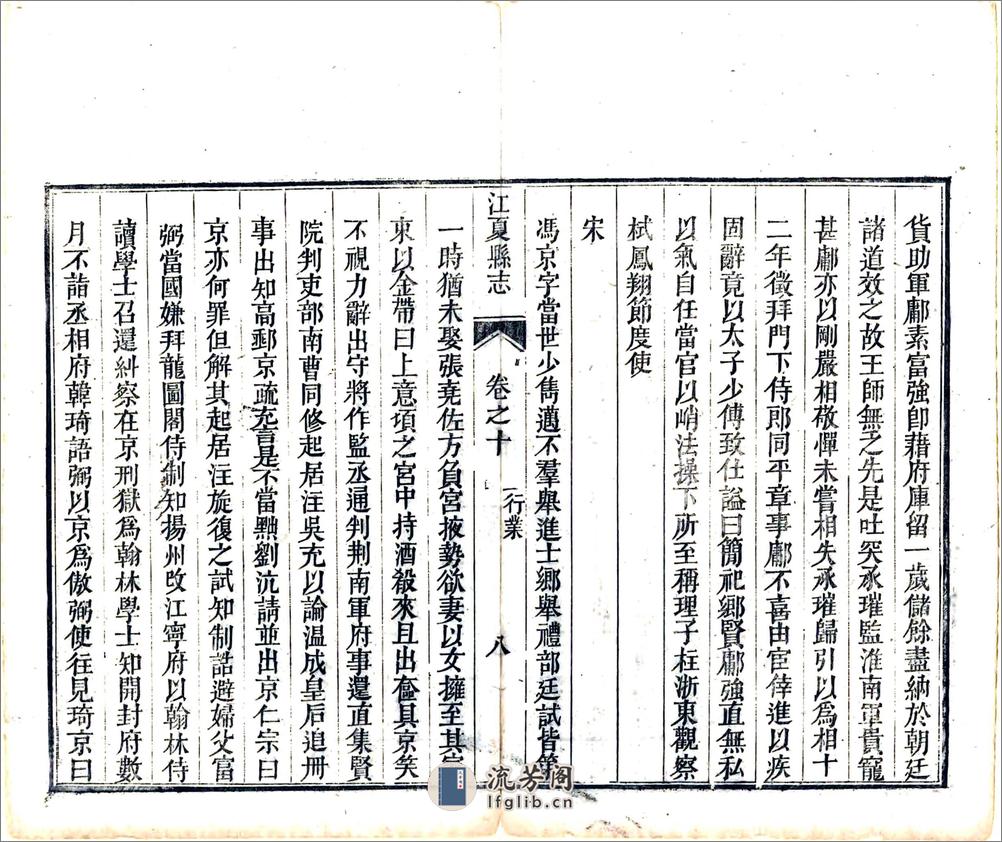 貨助軍鄘素富強卽藉府庫留一歲儲餘盡納於朝廷
諸道效之故王師無乏先是吐突承璀監淮南軍貴寵
甚鄘亦以剛嚴相敬憚未嘗相失承璀歸引以爲相十
二年徵拜門下侍郎同平章事鄘不喜由宦倖進以疾
固辭竟以太子少傅致仕謚曰簡祀鄉賢鄘強直無私
以氣自任當官以峭法操下所至稱理子柱浙東觀察
栻鳳翔節度使
宋
馮京字當世少雋邁不羣舉進士鄉舉禮部廷試皆第
江夏縣志
卷之十
行業
八
一時猶未娶張堯佐方負宮掖勢欲妻以女擁至其家
束以金帶曰上意頃之宮中持酒殽來且出奩具京笑
不視力辭出守將作監丞通判荆南軍府事還直集賢
院判吏部南曹同修起居注吳充以論温成皇后追冊
事出知高郵京疏充言是不當黜劉沆請並出京仁宗曰
京亦何罪但解其起居注旋復之試知制誥避婦父富
弼當國嫌拜龍圖閣侍制知揚州改江寧府以翰林侍
讀學士召還糾察在京刑獄爲翰林學士知開封府數
月不詣丞相府韓琦語弼以京爲傲弼使往見琦京曰
流芳阁
lfglib.cn